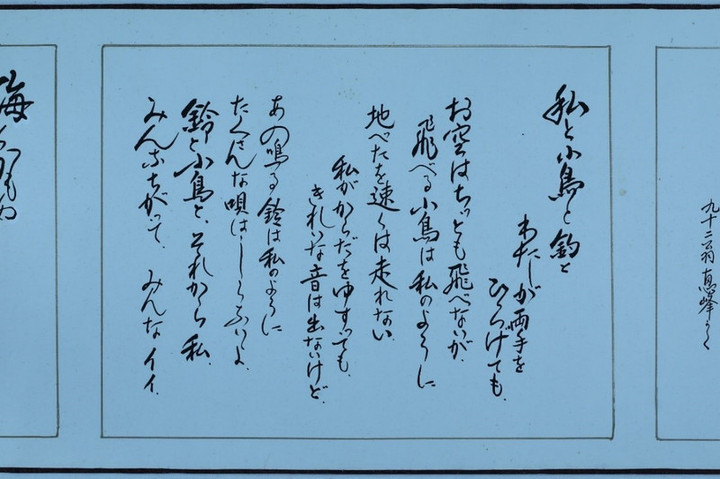 九十二翁 恵峰かく
私と小鳥と鈴と
わたしが両手を
ひろげても、
お空はちっとも飛べないが、
飛べる小鳥は私のように
地べたを速くは走れない
私がからだをゆすっても、
きれいな音は出ないけど、
あの鳴る鈴は私のように
たくさんな唄はしらないよ、
鈴と小鳥と、それから私、
みんなちがって、みんなイイ、
海